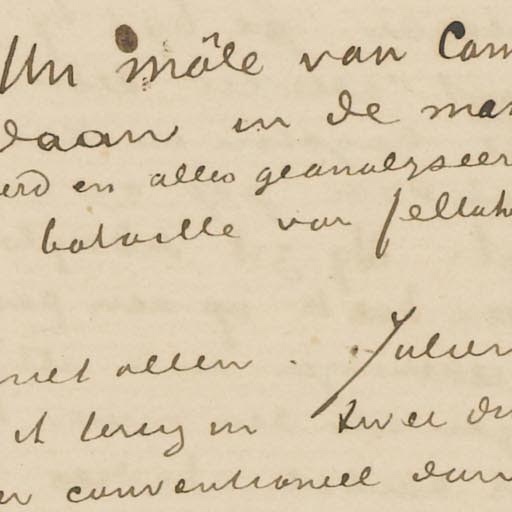 Un môle van Cam
daan in de man
erd en alles geanalyseer
bataille van fellah
niet alleen. Julien
it terug in twee du
conventioneel dan